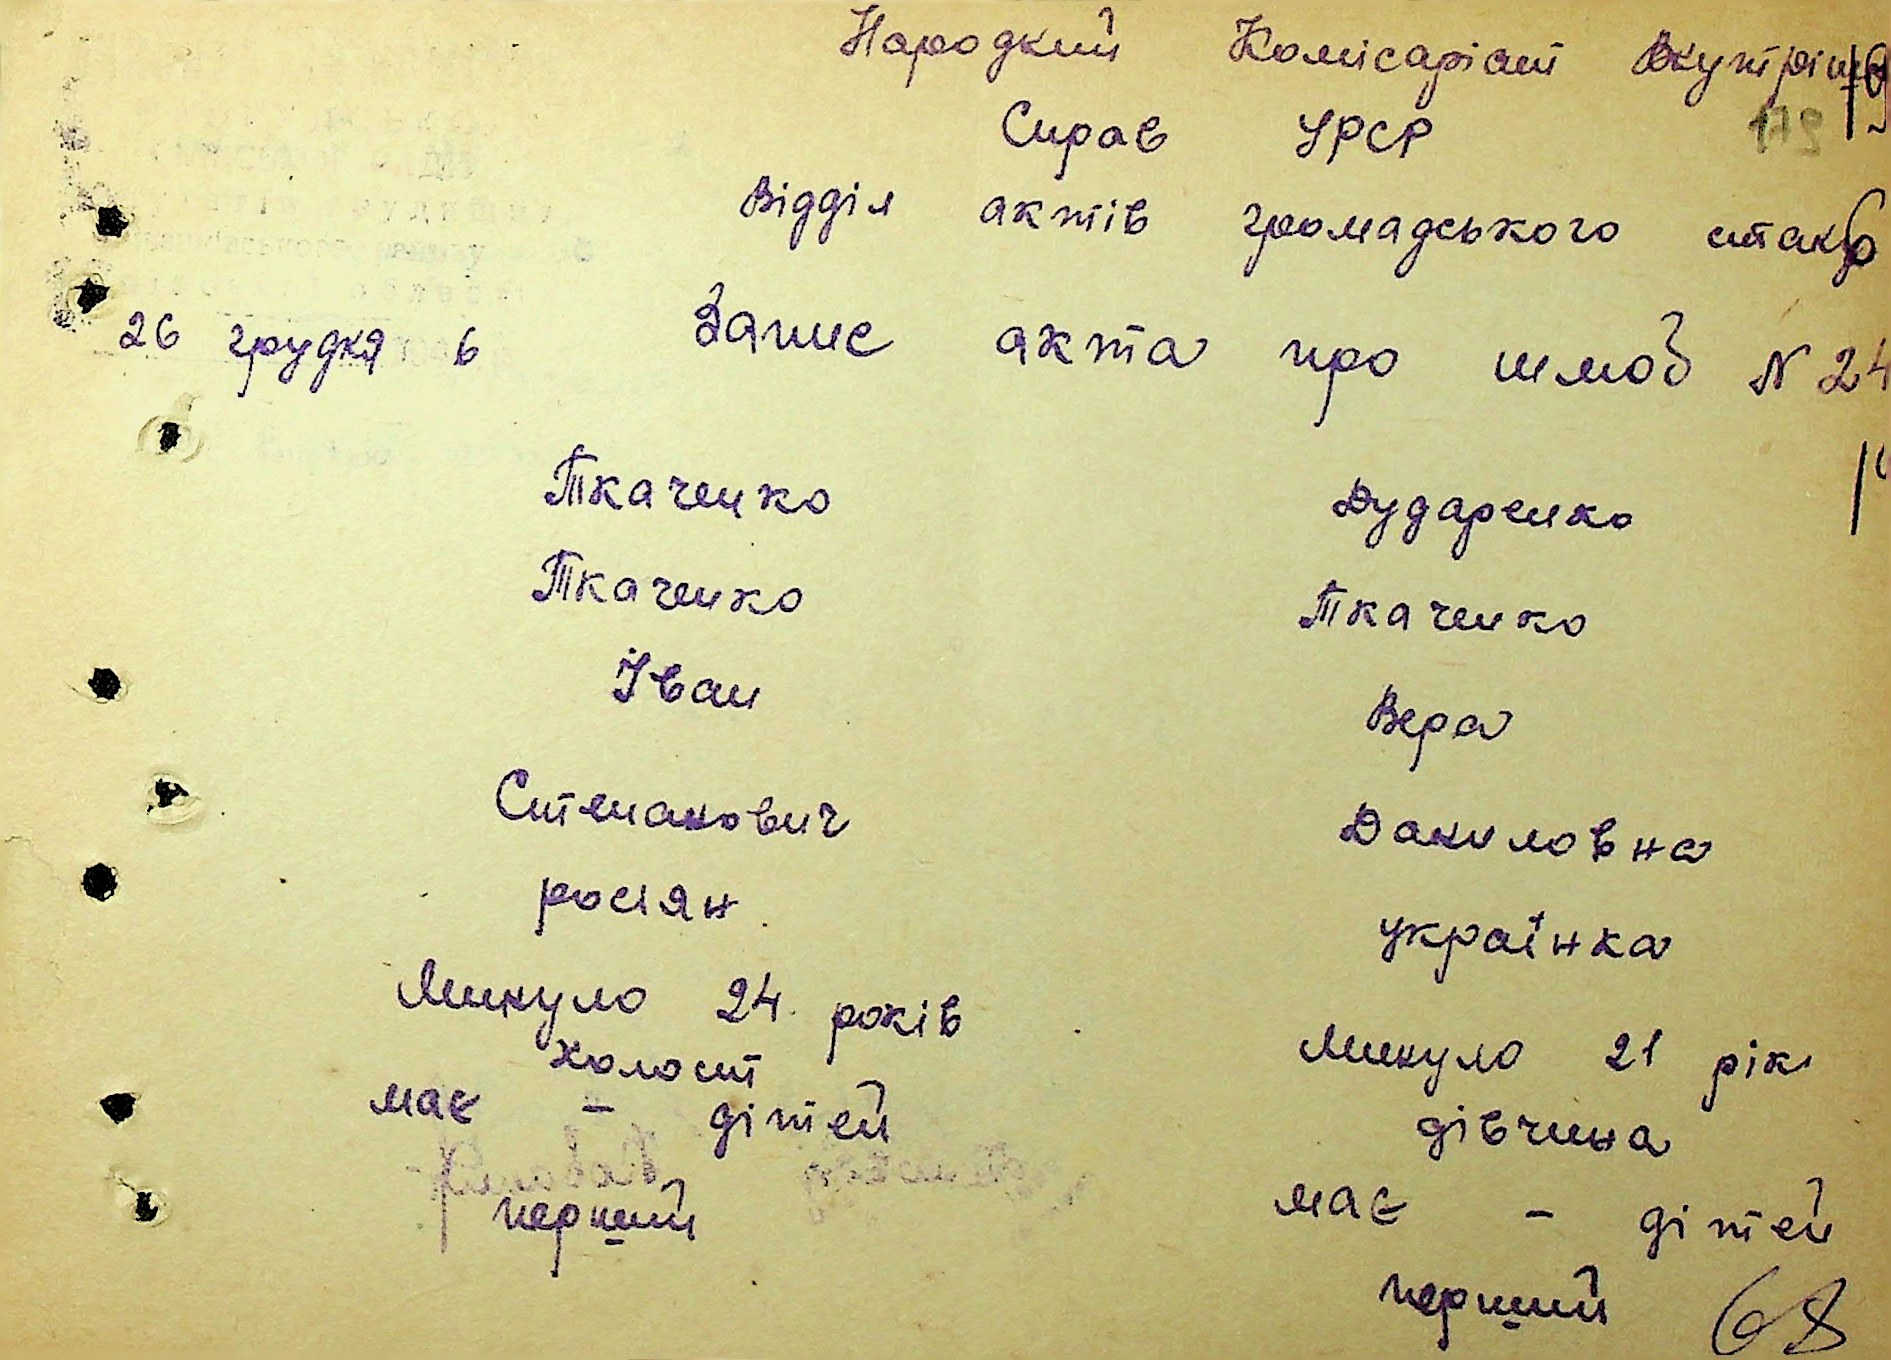 Народний Комісаріат Внутрішн
Справ УРСР
179
Відділ актів громадського стану
26 грудня 6 Запис акта про шлюб N 24
Ткаченко Дударенко
Ткаченко Ткаченко
Іван Вера
Степанович Даниловна
росіян українка
Минуло 24 років Минуло 21 рік
холост дівчина
має - дітей має - дітей
перший перший
68